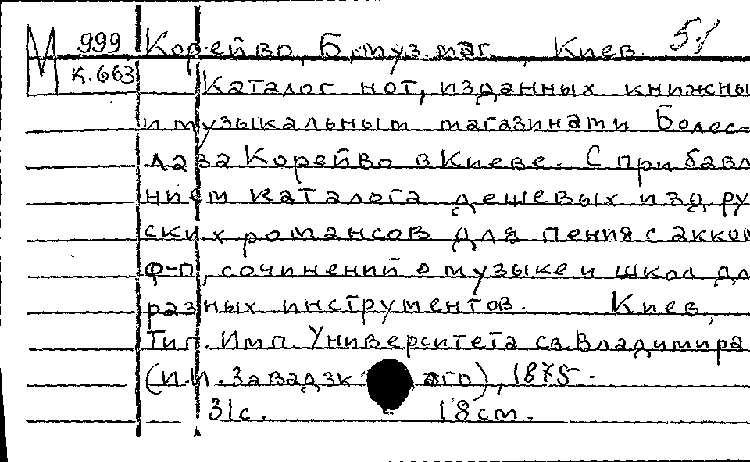 М 999 Корейво, Б, муз. маг., Киев. 51
К.663 Каталог нот, изданных книжны
и музыкальным магазинами Болес-
лава Корейво в Киеве. С прибавл
нием каталога дешевых изд ру
ских романсов для пения с акком
ф-п, сочинений о музыке и школ дл
разных инструментов. Киев,
Тип. Имп. Университета св. Владимира
(И.И. Завадзк ого), 1875.
31с. 18см.